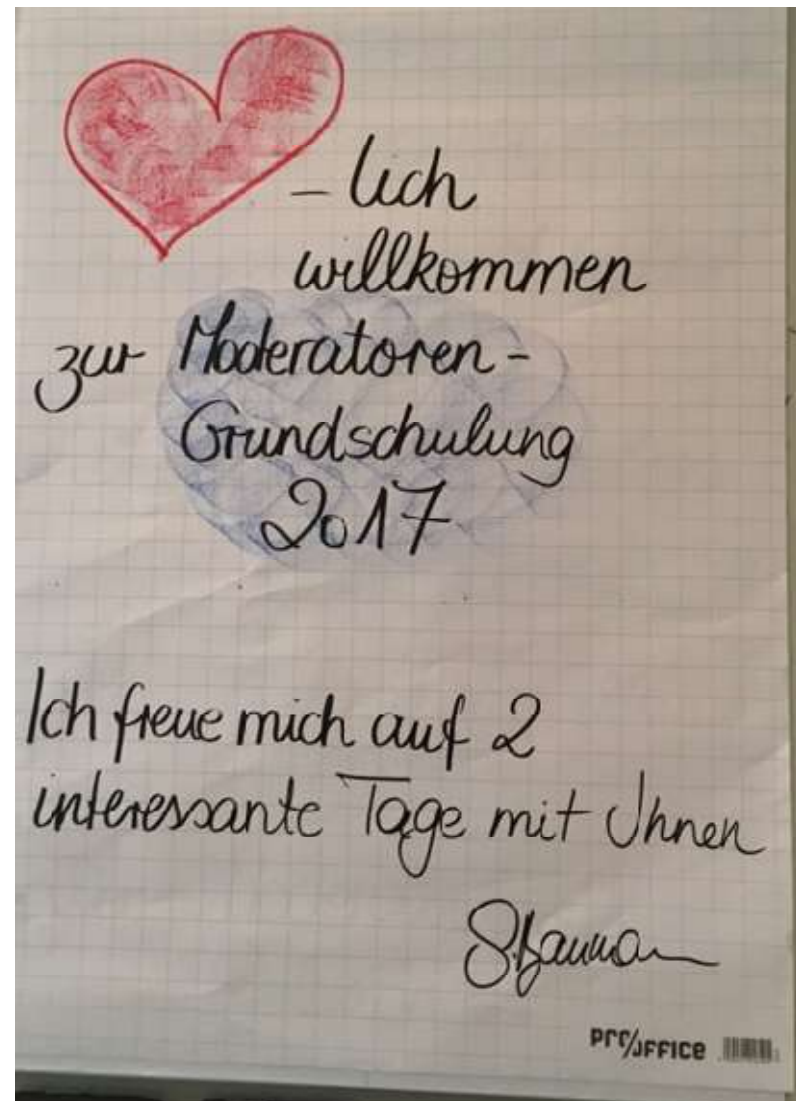 – lich
willkommen
zur Moderatoren-
Grundschulung
2017
Ich freue mich auf 2
interessante Tage mit Ihnen
PRO/OFFICE